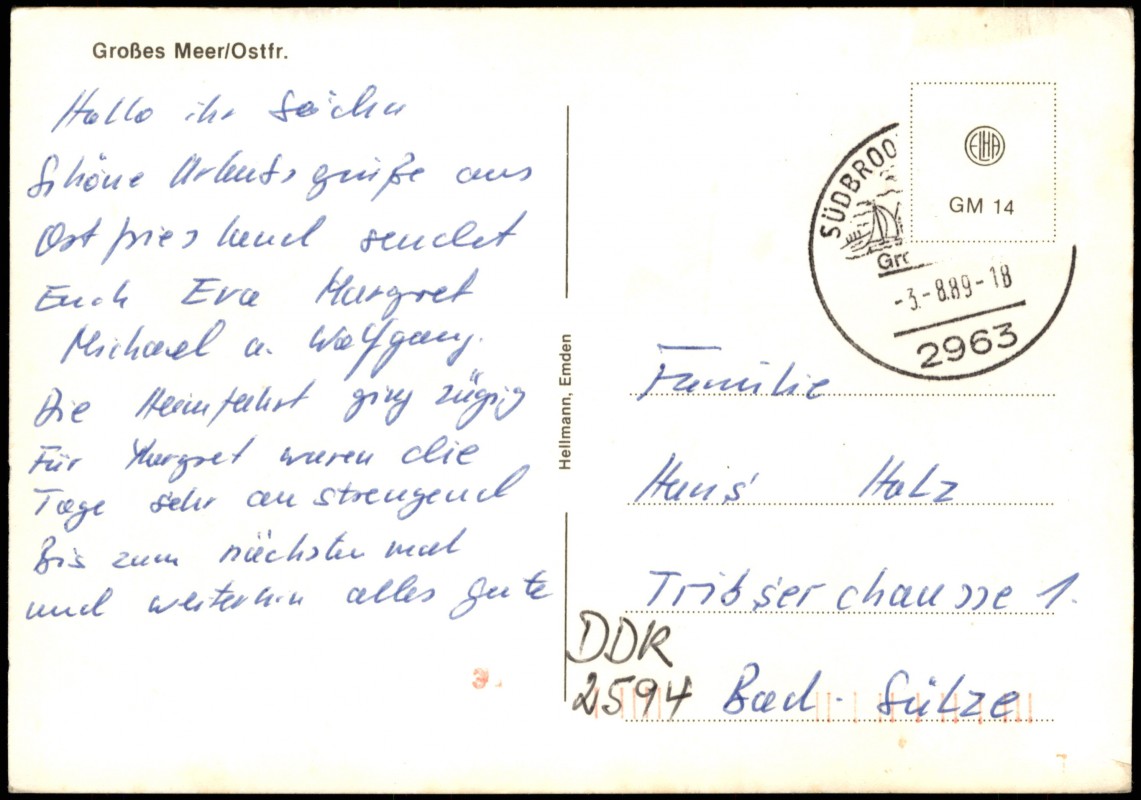 Großes Meer/Ostfr.
Hallo ihr
Schöne Urlaubsgrüße aus
Ostfriesland sendet
Euch Eva Margret
Michael u. Wolfgang.
Die Heimfahrt ging zügig
Für Margret waren die
Tage sehr anstrengend
Bis zum nächsten mal
und weiterhin alles gute
Hellmann, Emden
ELHA
GM 14
SÜDBROO
Gro
-3.-8.89-18
2963
Familie
Hans Holz
Tribserchausse 1.
DDR
2594 Bad-Sülze
3.